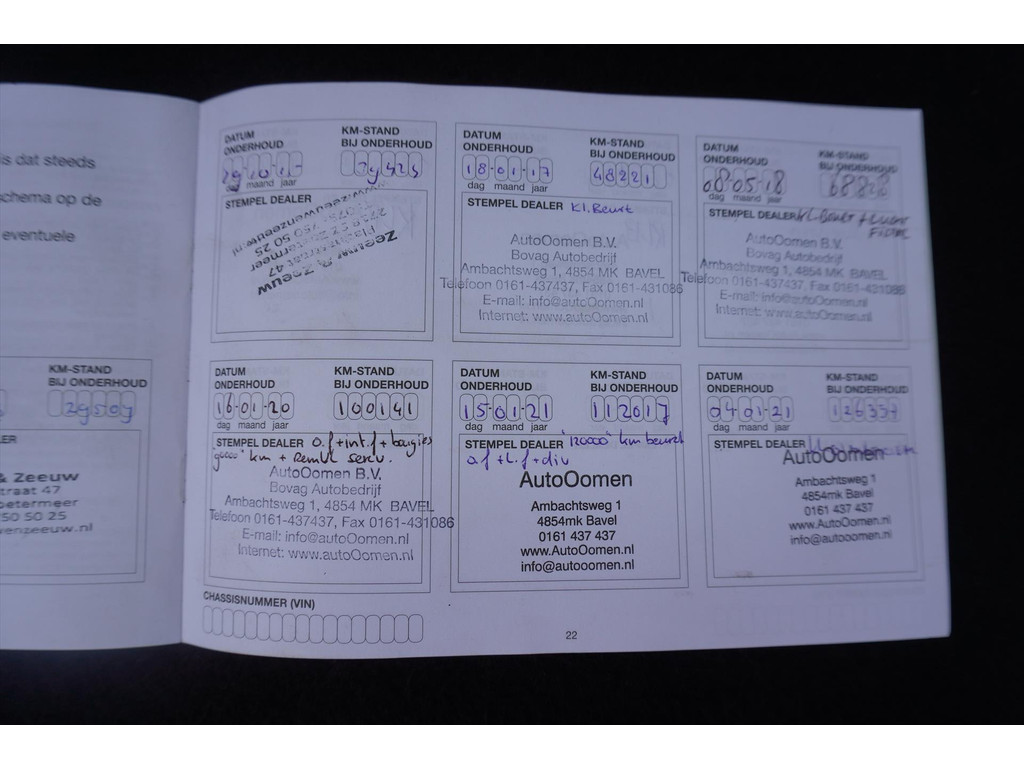 is dat steeds
schema op de
eventuele
KM-STAND
BIJ ONDERHOUD
29507
& Zeeuw
traat 47
oetermeer
50 50 25
wenzeeuw.nl
DATUM
ONDERHOUD
KM-STAND
BIJ ONDERHOUD
dag maand jaar
STEMPEL DEALER
Zeeuw & Zeeuw
750 50 25
www.zeeuwenzeeuw.nl
DATUM
ONDERHOUD
KM-STAND
BIJ ONDERHOUD
18-01-17
48221
dag maand jaar
STEMPEL DEALER Kl. Beurt
AutoOomen B.V.
Bovag Autobedrijf
Ambachtsweg 1, 4854 MK BAVEL
Telefoon 0161-437437, Fax 0161-431086
E-mail: info@autoOomen.nl
Internet: www.autoOomen.nl
DATUM
ONDERHOUD
KM-STAND
BIJ ONDERHOUD
08-05-18
dag maand jaar
STEMPEL DEALER Kl. Beurt
AutoOomen B.V.
Bovag Autobedrijf
Ambachtsweg 1, 4854 MK BAVEL
Telefoon 0161-437437, Fax 0161-431086
E-mail: info@autoOomen.nl
Internet: www.autoOomen.nl
DATUM
ONDERHOUD
KM-STAND
BIJ ONDERHOUD
16-01-20
100141
dag maand jaar
STEMPEL DEALER O.f + int.f + bougies
90000" km + Remvl serv.
AutoOomen B.V.
Bovag Autobedrijf
Ambachtsweg 1, 4854 MK BAVEL
Telefoon 0161-437437, Fax 0161-431086
E-mail: info@autoOomen.nl
Internet: www.autoOomen.nl
DATUM
ONDERHOUD
KM-STAND
BIJ ONDERHOUD
15-01-21
112017
dag maand jaar
STEMPEL DEALER "120000" km beurt
o.f + l.f + div
AutoOomen
Ambachtsweg 1
4854mk Bavel
0161 437 437
www.AutoOomen.nl
info@autooomen.nl
DATUM
ONDERHOUD
KM-STAND
BIJ ONDERHOUD
04-01-21
126337
dag maand jaar
STEMPEL DEALER
AutoOomen
Ambachtsweg 1
4854mk Bavel
0161 437 437
www.AutoOomen.nl
info@autooomen.nl
CHASSISNUMMER (VIN)
22